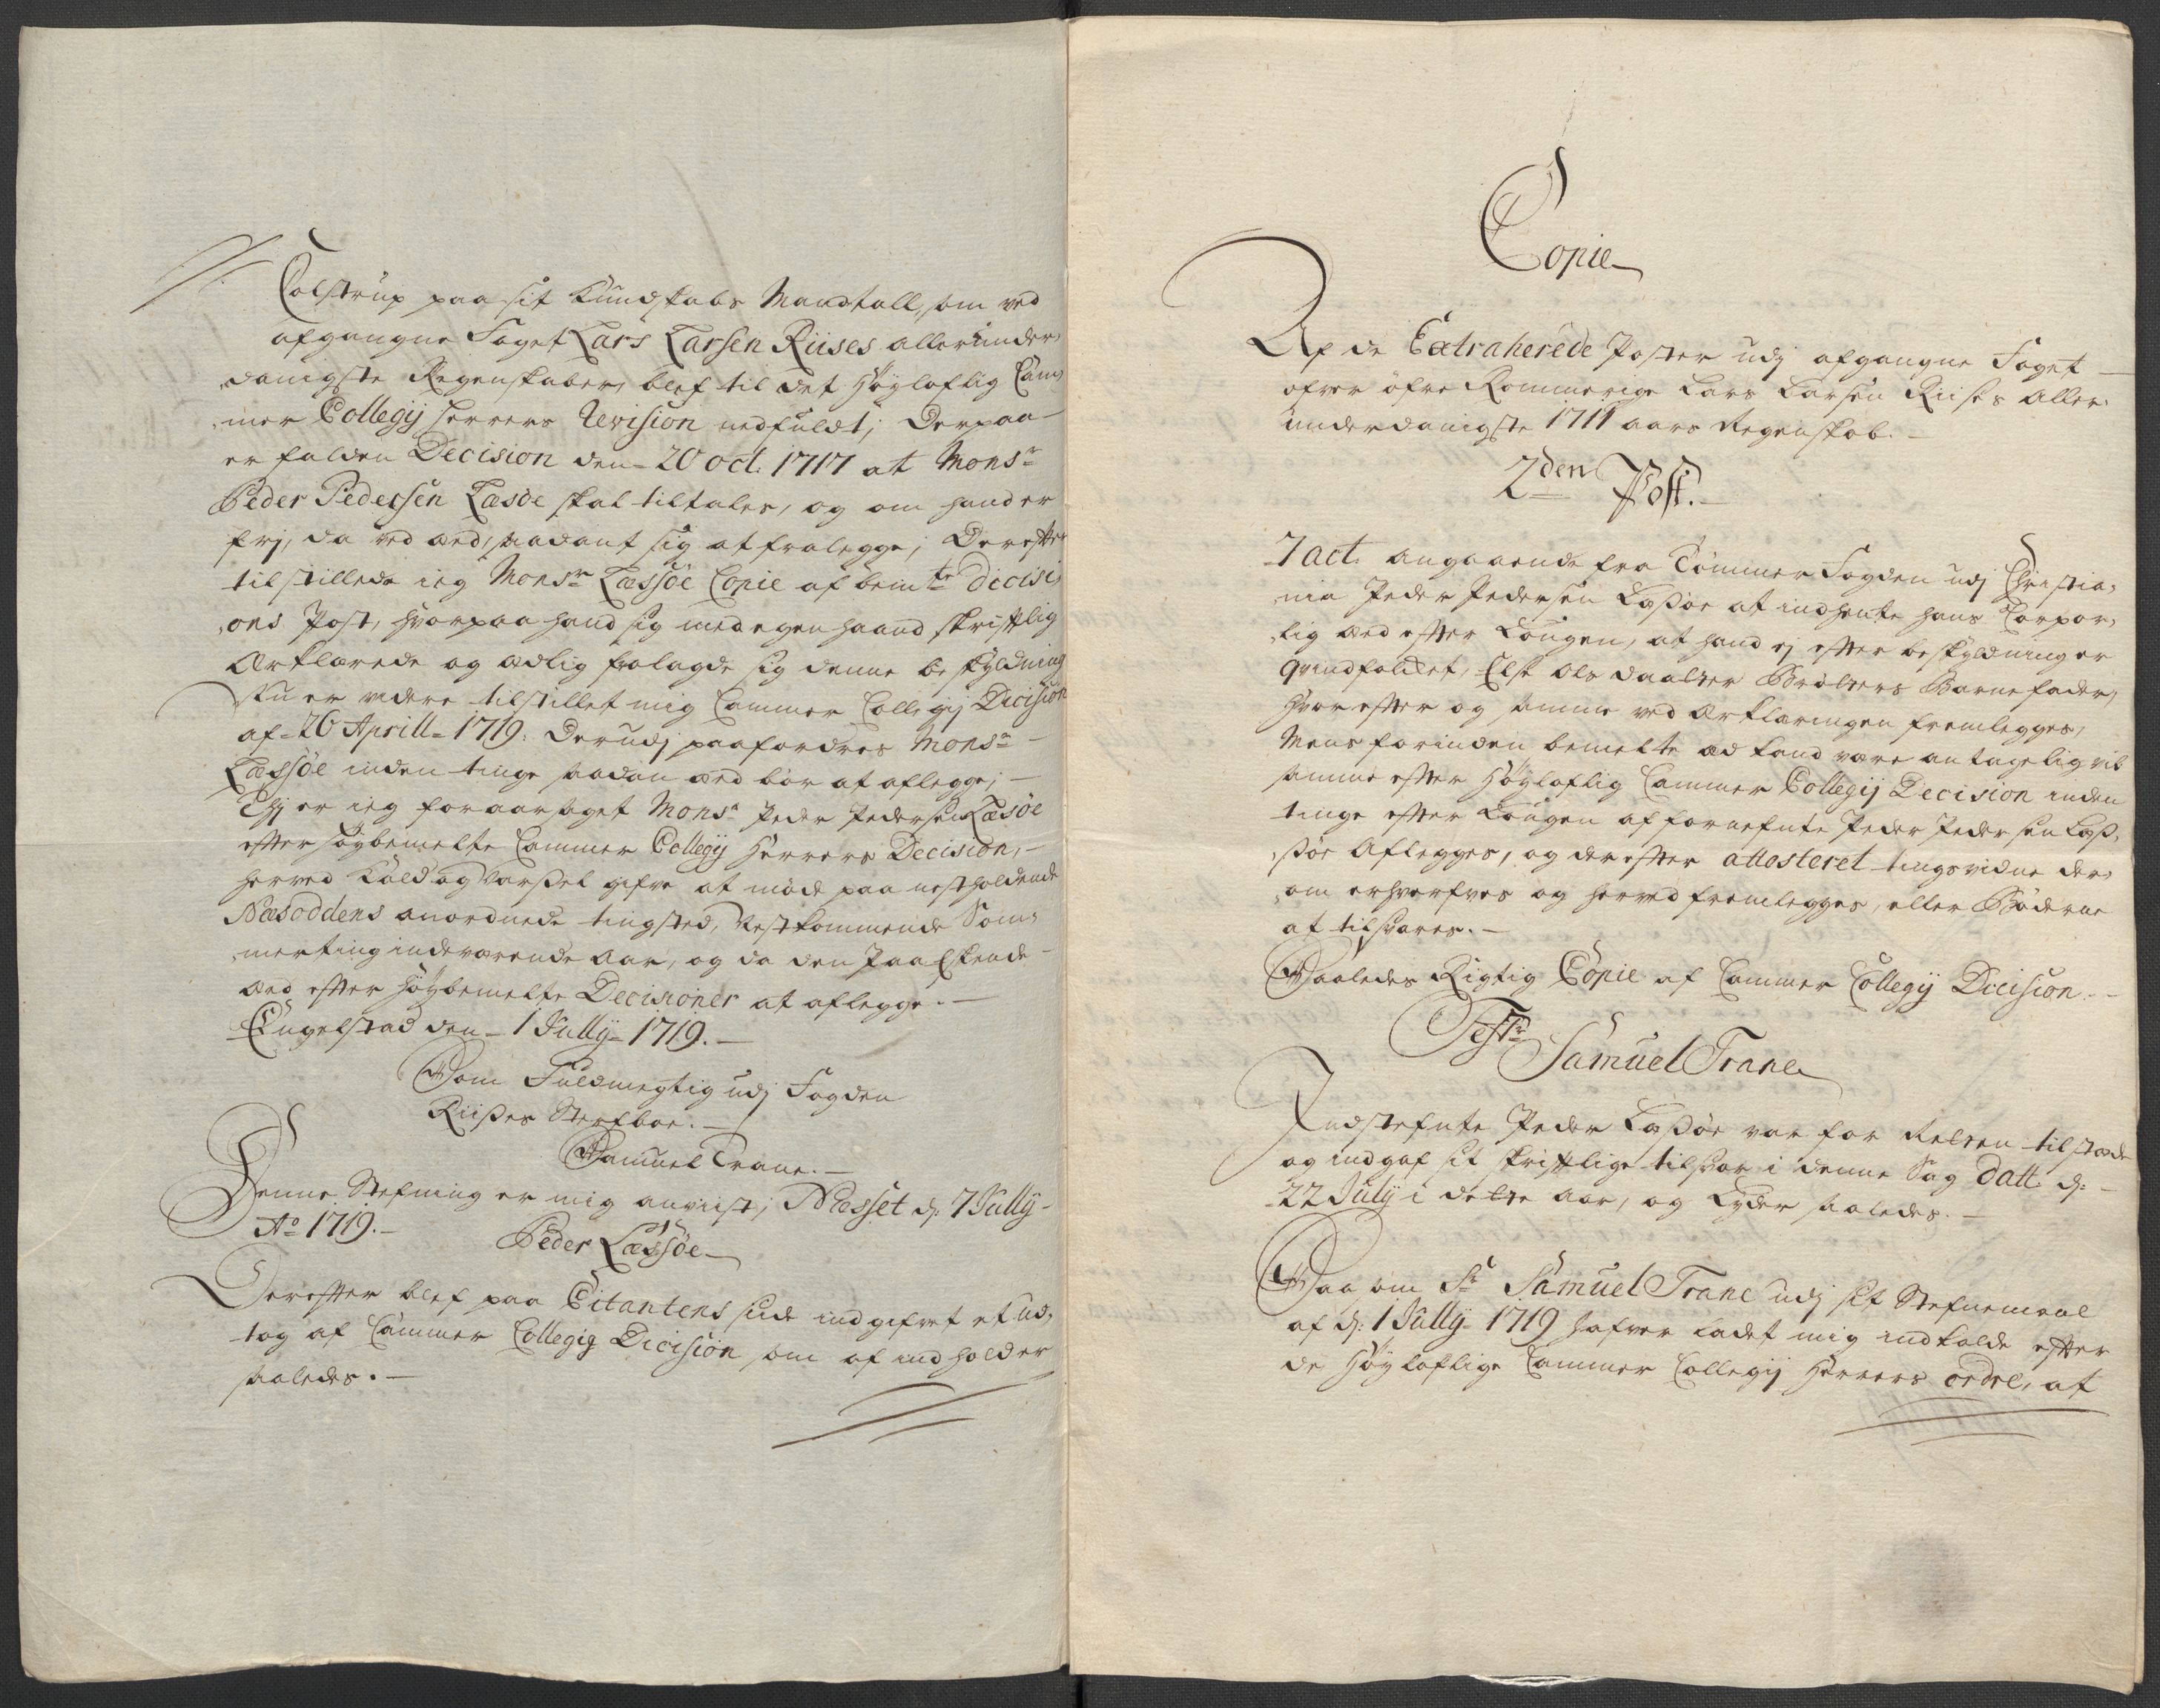 Colstrup paa sit Kundskabs Mandtall, som ved
afgangne Foget Lars Larsen Riises allerunder,
danigste Regenskaber, blef til det Høyloflig Cam,
mer Collegij Herrers Revision nedfuldt; Derpaa
er falden Decision den 20 oct. 1717 at Monsr
Peder Pedersen Læsøe skal tiltales, og om hand er
frj, da ved æd, saadant sig at fralegge; Derefter
tilstillede ieg Monsr Læssøe Copie af bemte Decisi,
ons Post, hvorpaa hand sig med egen haand skriftlig
Ærklærede og ædlig fralagde sig denne beskyldning
Nu er videre tilstillet mig Cammer Collegij Dicision
af 26 Aprill 1719. Derudj paafordres Monsr
Læssøe inden tinge saadan æd bør at aflegge;
Thj er ieg foraarsaget Monsr Peder Pedersen Læsøe
efter høybemelte Cammer Collegij Herrers Decision,
herved Kald og Varssel gifve at møde paa nestholdende
Næsoddens anordnede tingsted, Nestkommende Som,
merting indeværende Aar, og da den Paaeskende
æd efter høybemelte Decisioner at aflegge.
Engelstad den 1 Jully 1719.
Som Fuldmegtig udj Fogden
Riises Sterfboe.
Samuel Trane.
Denne Stefning er mig anviist; Næsset d. 7 Jully
Ao 1719.
Peder Læssøe
Derefter blef paa Citantens side indgifvet et ud,
tog af Cammer Collegij Dicision som af indholder
saaledes.
Copie
Af de Extraherede Poster udj afgangne Foget
ofver øfre Rommerige Lars Larsen Riises Aller,
underdanigste 1711 aars Regenskab.
2den Post.
7 act. angaaende fra Tømmer Fogden udj Christia,
nia Peder Pedersen Lassøe at indhente hans Corpor,
lig æd efter Lougen, at hand ej efter beskyldning er
qvindfolcket, Else Ols daatter Brøtters Barnefader,
hvorefter og samme ved Ærklæringen fremlegges,
Mens forinden bemelte æd kand være antagelig vil
samme efter Høyloflig Cammer Collegij Decision inden
tinge efter Lougen af fornefnte Peder Pedersen Læs,
søe Aflegges, og derefter attesteret tingsvidne der,
om erhverfves og herved fremlegges, eller Bøderne
at tilsvares.
Saaledes Rigtig Copie af Cammer Collegij Dicision.
Testr
Samuel Trane
Indstefnte Peder Lassøe var for Retten tilstæde
og indgaf sit skriftlige tilsvar i denne Sag Datt. d:
22 July i dette Aar, og Lyder saaledes.
Saa som Sr Samuel Trane udj sit Stefnemaal
af d: 1 Jully 1719 hafver ladet mig indkalde efter
de Høyloflige Cammer Collegij Herrers ordre, at